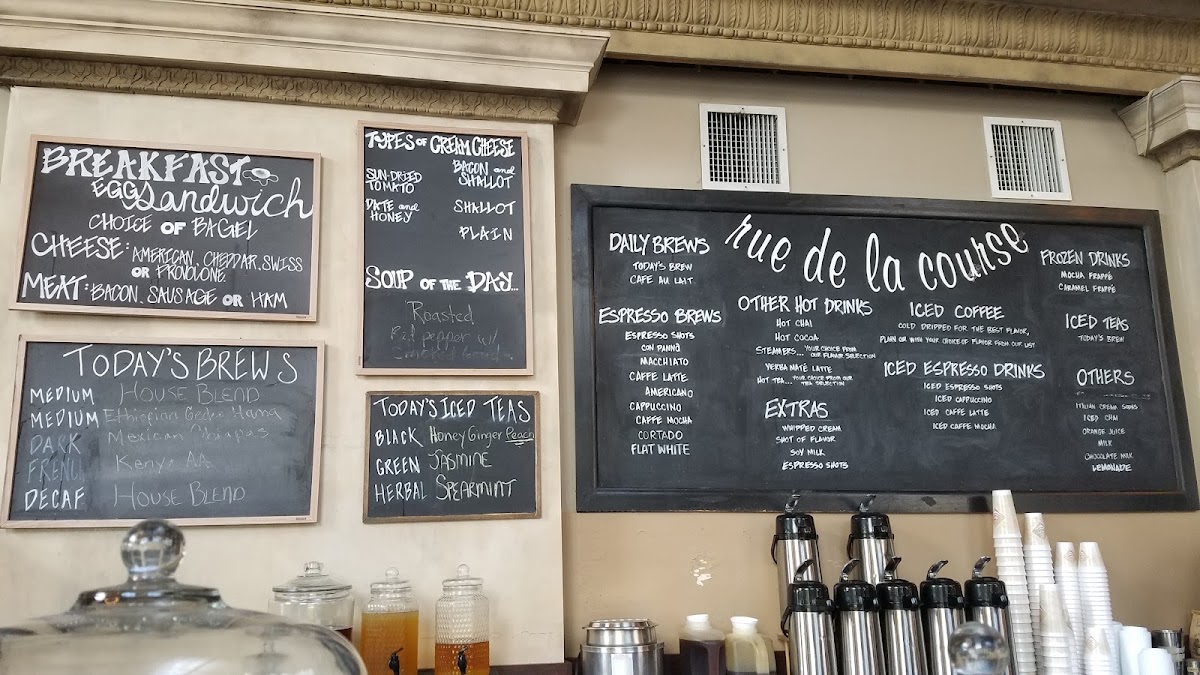 BREAKFAST
EGG Sandwich
CHOICE OF BAGEL
CHEESE: AMERICAN, CHEDDAR, SWISS
OR PROVOLONE
MEAT: BACON, SAUSAGE OR HAM
TYPES OF CREAM CHEESE
SUN-DRIED
TOMATO
DATE and
HONEY
BACON and
SHALLOT
SHALLOT
PLAIN
SOUP OF THE DAY...
Roasted
Red pepper w/
TODAY'S BREWS
MEDIUM House Blend
MEDIUM Ethiopian Gedeo Hama
DARK Mexican Chiapas
FRENCH Kenya AA
DECAF House Blend
TODAY'S ICED TEAS
BLACK Honey Ginger Peach
GREEN JASMINE
HERBAL SPEARMINT
rue de la course
DAILY BREWS
TODAY'S BREW
CAFE AU LAIT
ESPRESSO BREWS
ESPRESSO SHOTS
CON PANNA
MACCHIATO
CAFFE LATTE
AMERICANO
CAPPUCCINO
CAFFE MOCHA
CORTADO
FLAT WHITE
OTHER HOT DRINKS
HOT CHAI
HOT COCOA
STEAMERS... YOUR CHOICE FROM
OUR FLAVOR SELECTION
YERBA MATÉ LATTE
HOT TEA... YOUR CHOICE FROM OUR
TEA SELECTION
EXTRAS
WHIPPED CREAM
SHOT OF FLAVOR
SOY MILK
ESPRESSO SHOTS
ICED COFFEE
COLD DRIPPED FOR THE BEST FLAVOR,
PLAIN OR WITH YOUR CHOICE OF FLAVOR FROM OUR LIST
ICED ESPRESSO DRINKS
ICED ESPRESSO SHOTS
ICED CAPPUCCINO
ICED CAFFE LATTE
ICED CAFFE MOCHA
FROZEN DRINKS
MOCHA FRAPPÉ
CARAMEL FRAPPÉ
ICED TEAS
TODAY'S BREW
OTHERS
ITALIAN CREAM SODAS
ICED CHAI
ORANGE JUICE
MILK
CHOCOLATE MILK
LEMONADE